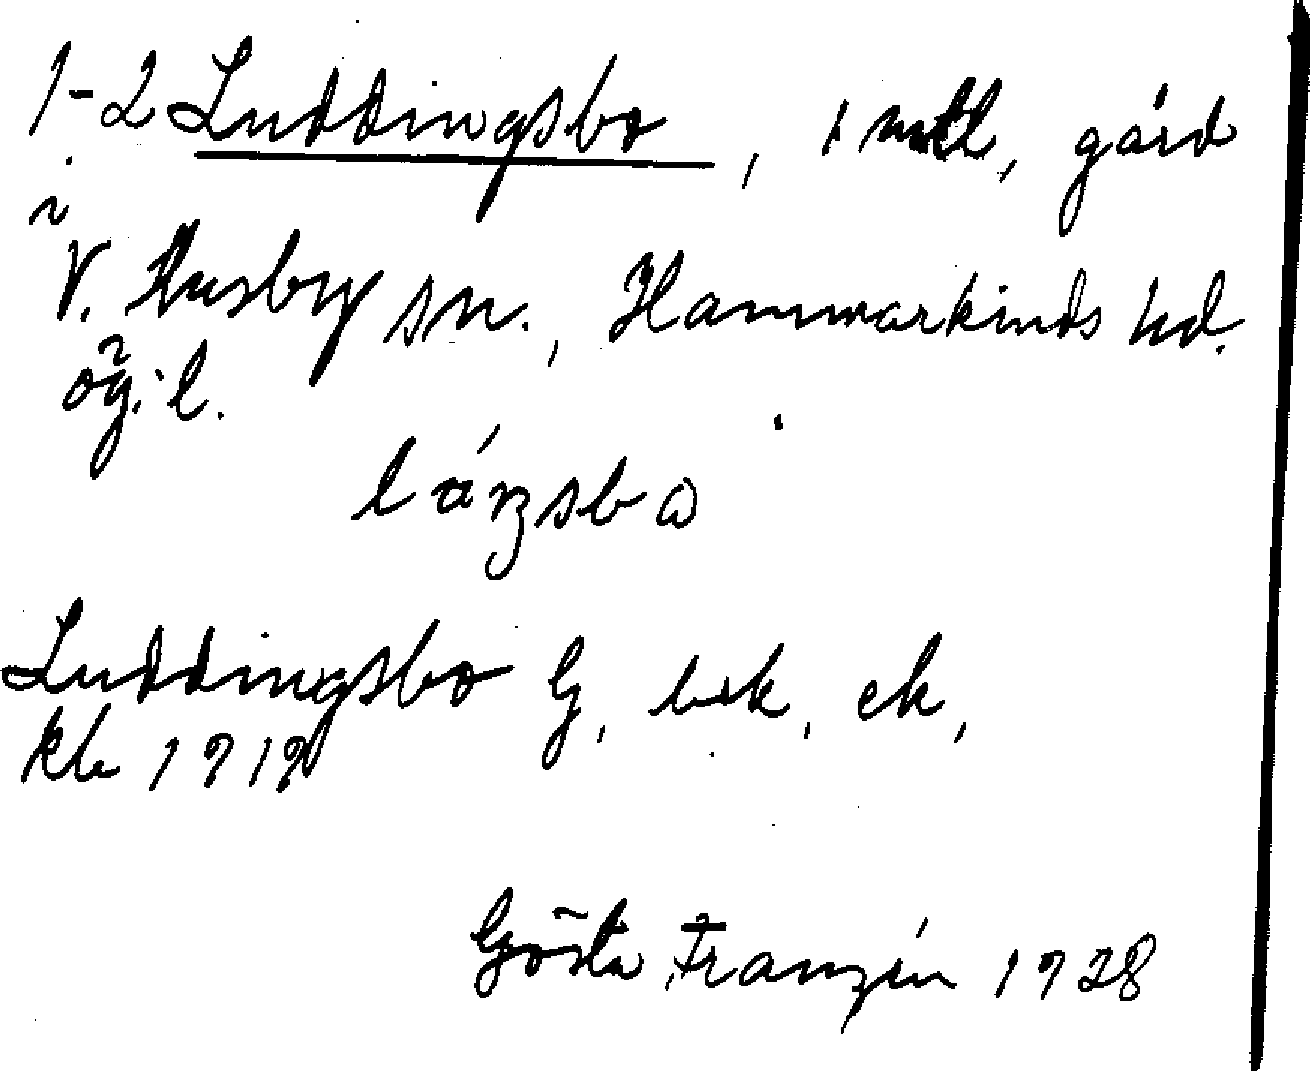 1-2 Luddingsbo, 1 mtl, gård
i
V. Husby sn., Hammarkinds hd.
Ög. l.
Luddingsbo G, bek, ek,
kb 1719
Gösta Franzén 1928